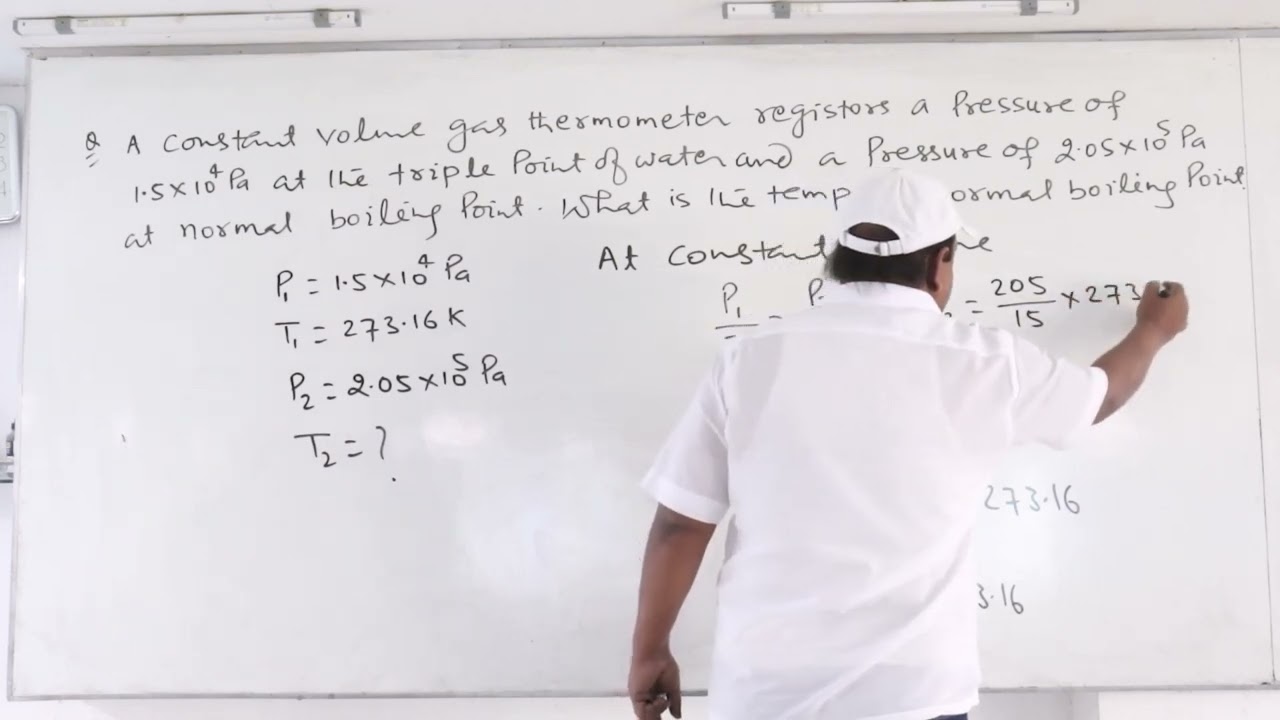 Q A constant volume gas thermometer registors a Pressure of
1.5×10⁴ Pa at the triple Point of water and a Pressure of 2.05×10⁵ Pa
at normal boiling Point. What is the temp ormal boiling Point.
P₁ = 1.5×10⁴ Pa
T₁ = 273.16 K
P₂ = 2.05×10⁵ Pa
T₂ = ?
At constant
P₁
= 205/15 × 273
273.16
3.16